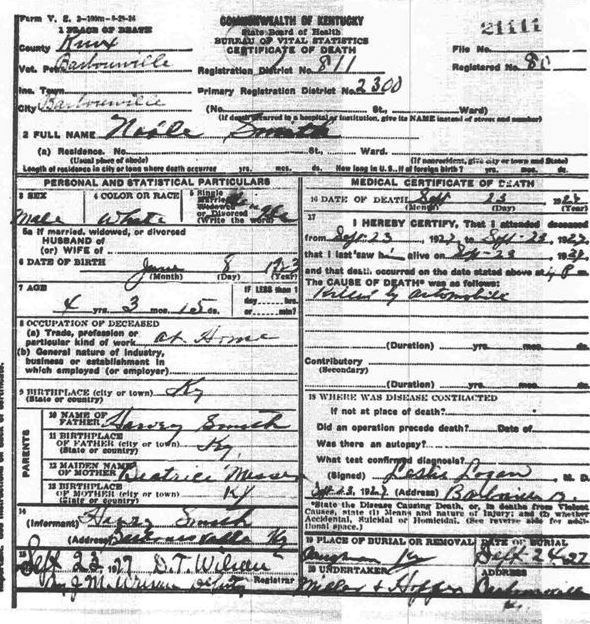 Form V. S.
1 PLACE OF DEATH
County Knox
Vot. Pct. Barbourville
Inc. Town
City Barbourville
COMMONWEALTH OF KENTUCKY
State Board of Health
BUREAU OF VITAL STATISTICS
CERTIFICATE OF DEATH
Registration District No. 811
Primary Registration District No. 2300
File No. 21111
Registered No. 80
(No. St., Ward)
(If death occurred in a hospital or institution, give its NAME instead of street and number)
2 FULL NAME Noble Smith
(a) Residence. No. St., Ward.
(Usual place of abode) (If nonresident, give city or town and State)
Length of residence in city or town where death occurred yrs. mos. ds. How long in U. S., if of foreign birth? yrs. mos. ds.
PERSONAL AND STATISTICAL PARTICULARS
3 SEX
Male
4 COLOR OR RACE
White
5 Single
Married
Widowed
or Divorced
(Write the word)
Single
5a If married, widowed, or divorced
HUSBAND of
(or) WIFE of
6 DATE OF BIRTH June 8 1923
(Month) (Day) (Year)
7 AGE
4 yrs. 3 mos. 15 ds.
IF LESS than 1
day hrs.
or min?
8 OCCUPATION OF DECEASED
(a) Trade, profession or
particular kind of work at Home
(b) General nature of industry,
business or establishment in
which employed (or employer)
9 BIRTHPLACE (city or town) Ky
(State or country)
PARENTS
10 NAME OF
FATHER Harvey Smith
11 BIRTHPLACE
OF FATHER (city or town) Ky.
(State or country)
12 MAIDEN NAME
OF MOTHER Beatrice Messer
13 BIRTHPLACE
OF MOTHER (city or town) Ky
(State or country)
14
(Informant) Harvey Smith
(Address) Barbourville Ky
15
Sept 23, 27 D. T. Wilson
J. M. Wilson Deputy Registrar
MEDICAL CERTIFICATE OF DEATH
16 DATE OF DEATH Sept 23 1927
(Month) (Day) (Year)
17
I HEREBY CERTIFY, That I attended deceased
from Sept. 23, 1927, to Sept. 23, 1927,
that I last saw him alive on Sept. 23 1927
and that death occurred on the date stated above at p m.
The CAUSE OF DEATH* was as follows:
Killed by automobile
(Duration) yrs. mos. ds.
Contributory
(Secondary)
(Duration) yrs. mos. ds.
18 WHERE WAS DISEASE CONTRACTED
If not at place of death?
Did an operation precede death? Date of
Was there an autopsy?
What test confirmed diagnosis?
(Signed) Leslie Logan M. D.
Sept. 23, 1927 (Address) Barbourville Ky.
*State the Disease Causing Death, or, in deaths from Violent
Causes, state (1) Means and nature of Injury; and (2) whether
Accidental, Suicidal or Homicidal. (See reverse side for additional space.)
19 PLACE OF BURIAL OR REMOVAL DATE OF BURIAL
Ky Sept 24 27
20 UNDERTAKER ADDRESS
Miller & Hopper Barbourville
Ky.